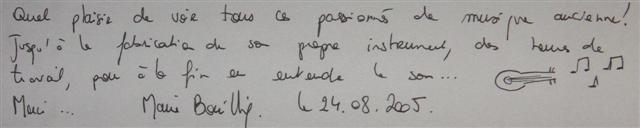 Quel plaisir de voir tous ces passionnés de musique ancienne!
Jusqu'à la fabrication de son propre instrument, des heures de
travail, pour à la fin en entendre le son...
Merci ... Marie le 24.08.2005.